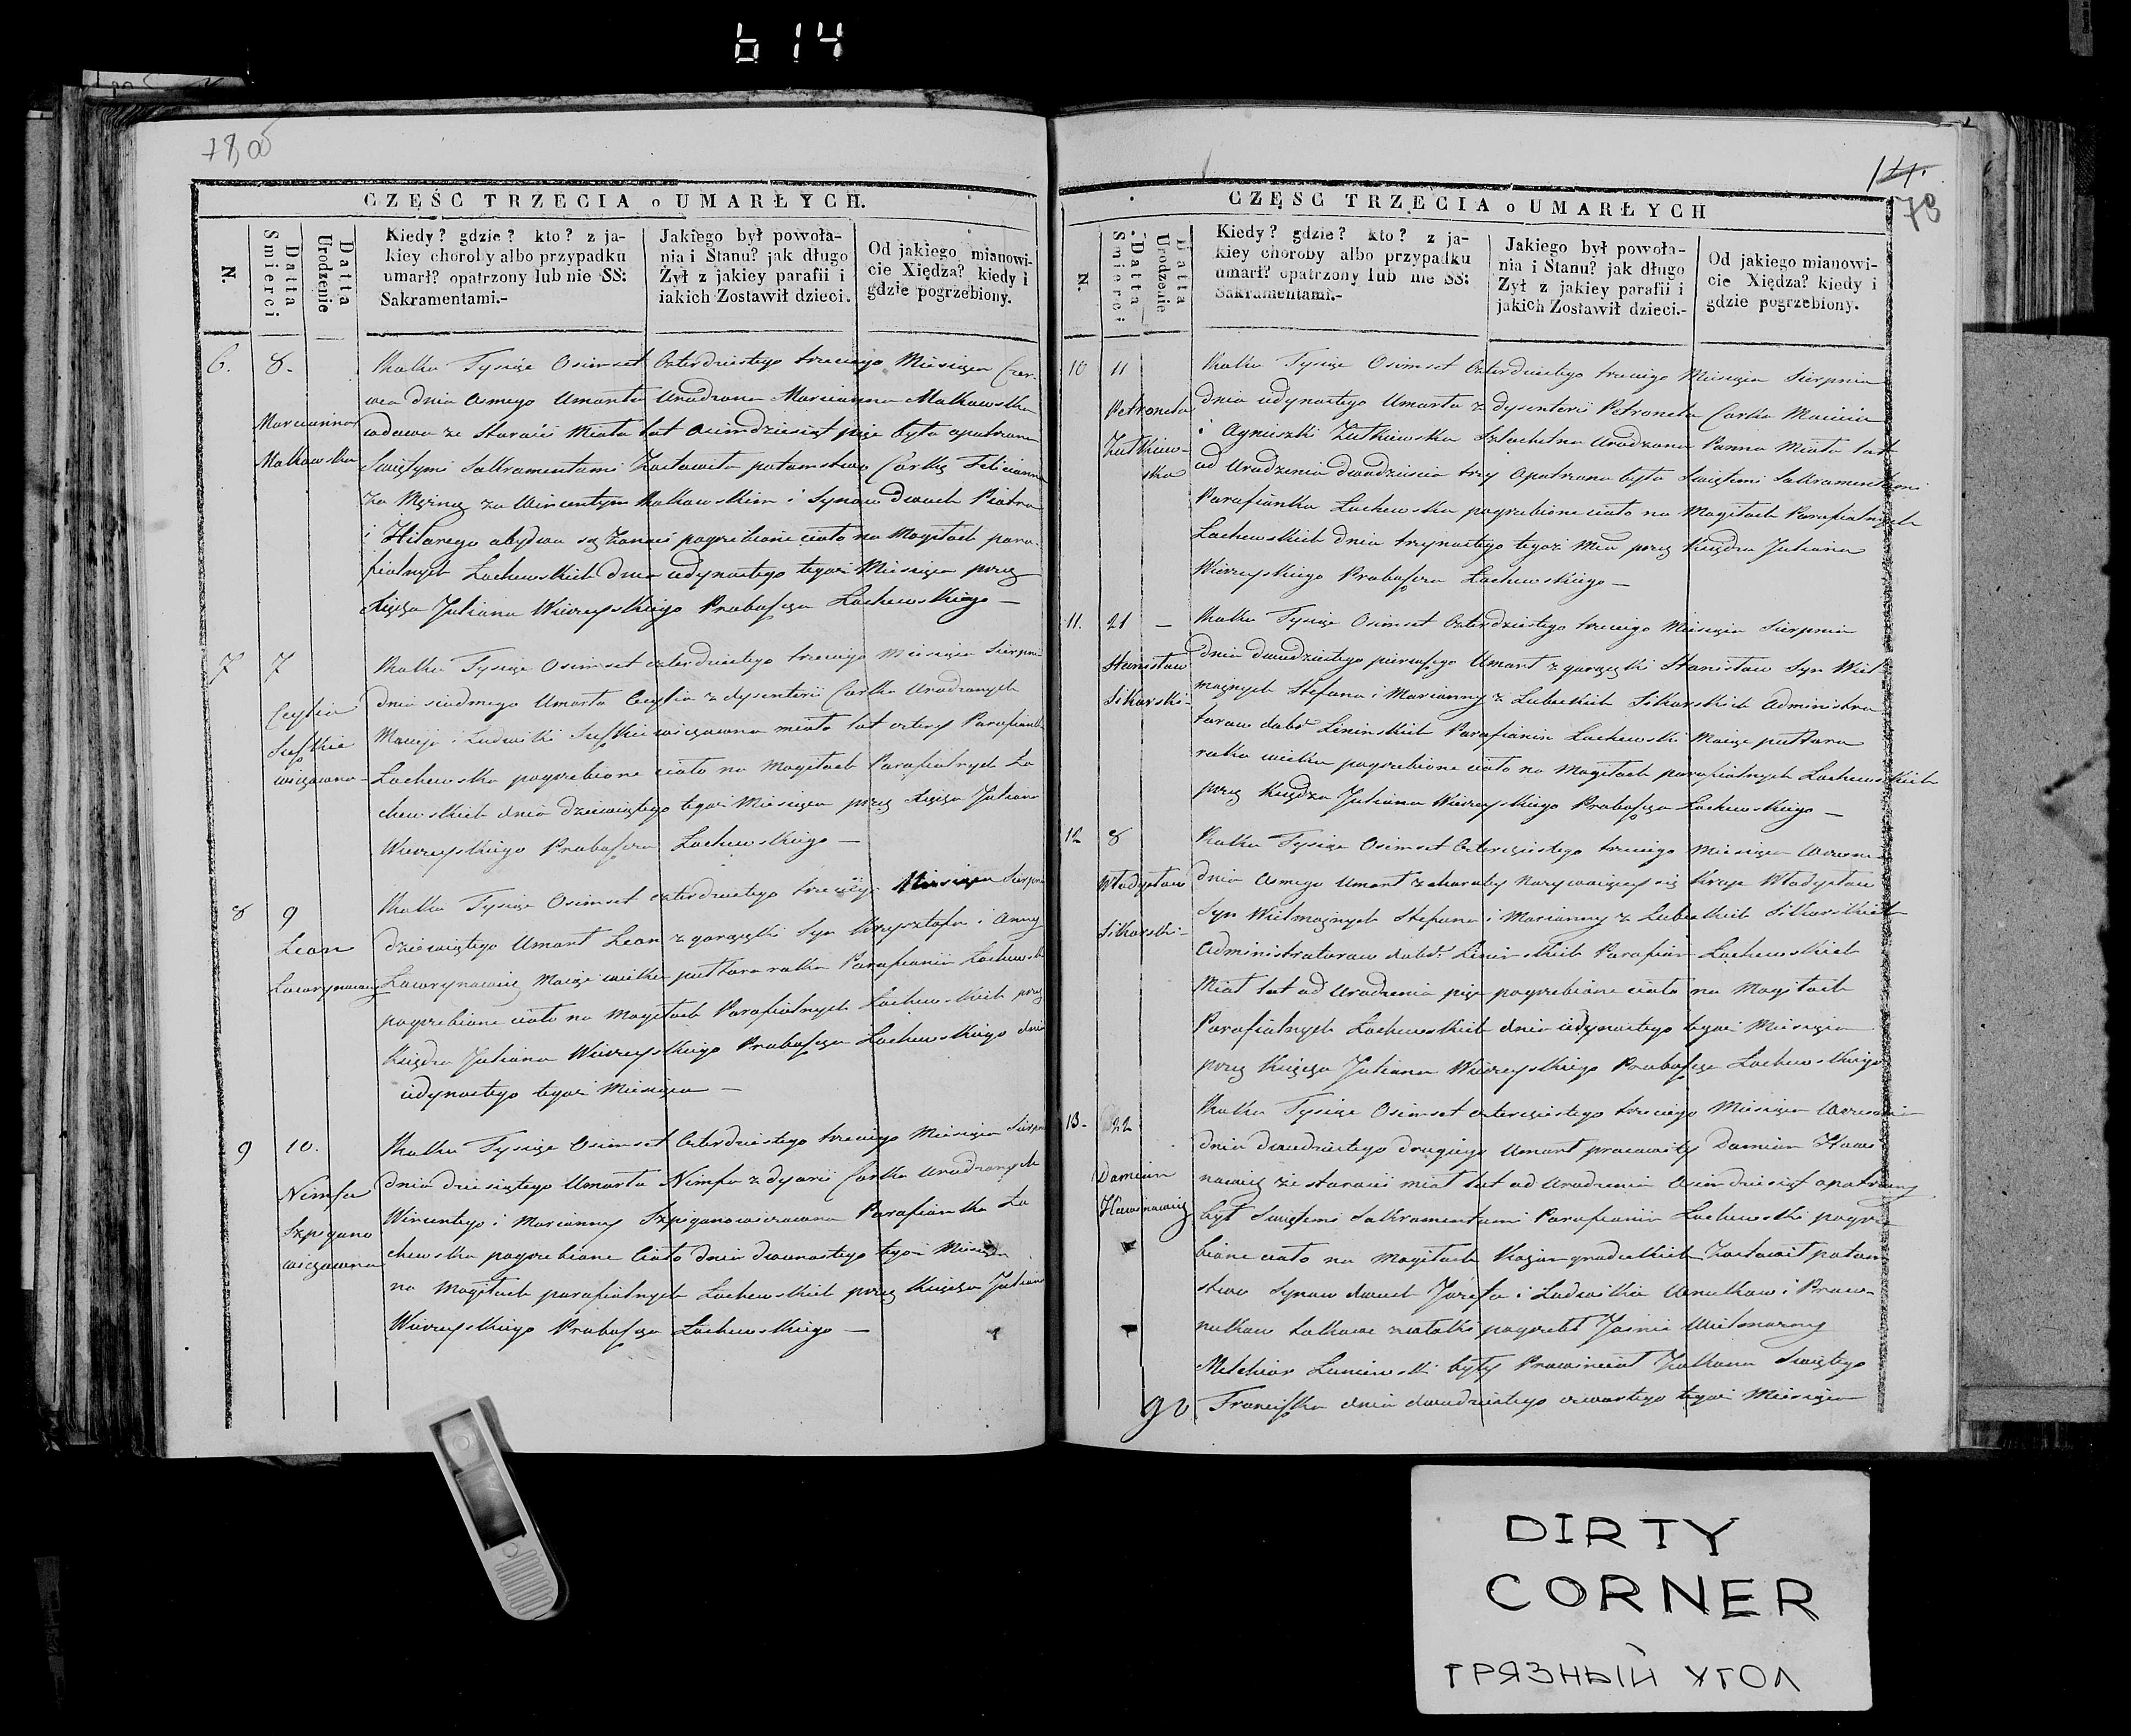 614
CZĘŚC TRZECIA o UMARŁYCH.
N.
Datta Smierci
Datta Urodzenie
Kiedy? gdzie? kto? z ja-
kiey choroby albo przypadku
umarł? opatrzony lub nie SS:
Sakramentami.-
Jakiego był powoła-
nia i Stanu? jak długo
Żył z jakiey parafii i
iakich Zostawił dzieci.
Od jakiego mianowi-
cie Xiędza? kiedy i
gdzie pogrzebiony.
6. 8.
Maryanna
Malkowska
Roku Tysiąc Osimset Czterdziestego trzeciego Miesiąca Czer-
wca dnia Osmego Umarła Urodzona Maryanna Malkowska
wdowa ze Starości Miała lat Osimdziesiąt pięć była opatrzona
Swiętymi Sakramentami Zostawiła potomstwo Corkę Felicianna
Za Mężną za Wincentym i Synow dwoch Piotra
i Hilarego obydwa są pogrzebione ciało na Mogiłach para-
fialnych Lachewskich dnia iedynastego tegoż Miesiąca przez
Xięza Juliana Wierzeyskiego Proboszcza Lachewskiego —
7 7
Cecylia
Roku Tysiąc Osimset czterdziestego trzeciego Miesiąca Sierpnia
dnia siodmego Umarła Cecylia z dysenterii Corka Urodzonych
Macieja i Ludwiki miała lat cztery Parafianka
Lachewska pogrzebione ciało na Mogiłach Parafialnych La
chewskich dnia dziewiątego tegoż Miesiąca przez Xięza Juliana
Wierzeyskiego Proboszcza Lachewskiego —
8 9
Leon
Lawrynowicz
Roku Tysiąc Osimset czterdziestego trzeciego Miesiąca Sierpnia
dziewiątego Umarł Leon z gorączki Syn Krzysztofa i Anny
Lawrynowicz Maiąc wieku pułtora roku Parafianin Lachewski
pogrzebione ciało na Mogiłach Parafialnych Lachewskich przez
Xiędza Juliana Wierzeyskiego Proboszcza Lachewskiego dnia
iedynastego tegoż Miesiąca —
9 10.
Nimfa
Szpigano
wiczowna
Roku Tysiąc Osimset Czterdziestego trzeciego Miesiąca Sierpnia
dnia dziesiątego Umarła Nimfa z dyarii Corka Urodzonych
Wincentego i Marianny Szpiganowiczowna Parafianka La
chewska pogrzebione Ciało dnia dwonastego tegoż Miesiąca
na Mogiłach parafialnych Lachewskich przez Xięza Juliana
Wierzeyskiego Proboszcza Lachewskiego —
78
CZĘSC TRZECIA o UMARŁYCH
N.
Datta Smierci
Datta Urodzenie
Kiedy? gdzie? kto? z ja-
kiey choroby albo przypadku
umarł? opatrzony lub nie SS:
Sakramentami.-
Jakiego był powoła-
nia i Stanu? jak długo
Żył z jakiey parafii i
jakich Zostawił dzieci.-
Od jakiego mianowi-
cie Xiędza? kiedy i
gdzie pogrzebiony.
10 11
Petronela
Zutkiew-
ska
Roku Tysiąc Osimset Czterdziestego trzeciego Miesiąca Sierpnia
dnia iedynastego Umarła z dysenterii Petronela Corka Macieia
i Agnieszki Zutkiewska Szlachetna Urodzona Panna Miała lat
od Urodzenia dwadziescia trzy Opatrzona była Swiętemi Sakramentami
Parafianka Lachewska pogrzebione ciało na Mogiłach Parafialnych
Lachewskich dnia trzynastego tegoż Mca przez Xiędza Juliana
Wierzeyskiego Proboszcza Lachewskiego —
11. 21 —
Stanisław
Sikorski-
Roku Tysiąc Osimset Czterdziestego trzeciego Miesiąca Sierpnia
dnia dwudziestego pierwszego Umarł z gorączki Stanisław Syn Wiel
możnych Stefana i Marianny z Lubeckich Sikorskich Administra
torow dobr Leninskich Parafianin Lachewski Maiąc pułtora
roku wieku pogrzebione ciało na Mogiłach parafialnych Lachewskich
przez Xiędza Juliana Wierzeyskiego Proboszcza Lachewskiego —
12 8
Władysław
Sikorski-
Roku Tysiąc Osimset Czterdziestego trzeciego Miesiąca Wrzesnia
dnia Osmego Umarł z choroby nazywaiącey się Władysław
Syn Wielmożnych Stefana i Marianny z Lubeckich Sikorskich
Administratorow dobr Leninskich Parafian Lachewskich
Miał lat od Urodzenia pięć pogrzebione ciało na Mogiłach
Parafialnych Lachewskich dnia iedynastego tegoż Miesiąca
przez Xięza Juliana Wierzeyskiego Proboszcza Lachewskiego
13- 22
Damian
Roku Tysiąc Osimset czterdziestego trzeciego Miesiąca Wrzesnia
dnia dwudziestego drugiego Umarł pracowity Damian
ze starości miał lat od Urodzenia Osimdziesiąt opatrzony
był Swiętemi Sakramentami Parafianin Lachewski pogrze
bione ciało na Mogiłach Kożangrodzkich Zostawił potom
stwo Synow dwoch Józefa i Ludwika Wnukow i Praw-
nukow zwłoki pogrzebł Jasnie Wielmożny
Melchior były Prowinciał Zakonu Swiętego
Franciszka dnia dwudziestego czwartego tegoż Miesiąca
90
DIRTY
CORNER
ГРЯЗНЫЙ УГОЛ